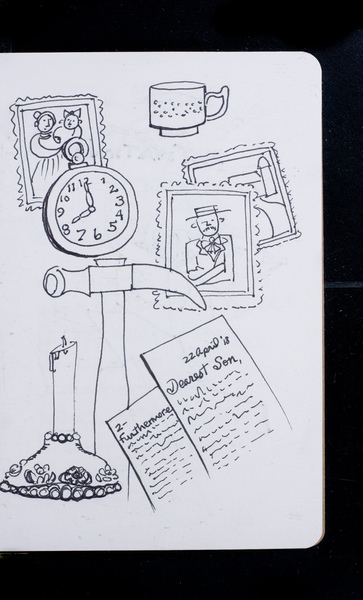 12
11 1
10 2
9 3
8 4
7 6 5
22 april '18
Dearest Son,
2-
Furthermore